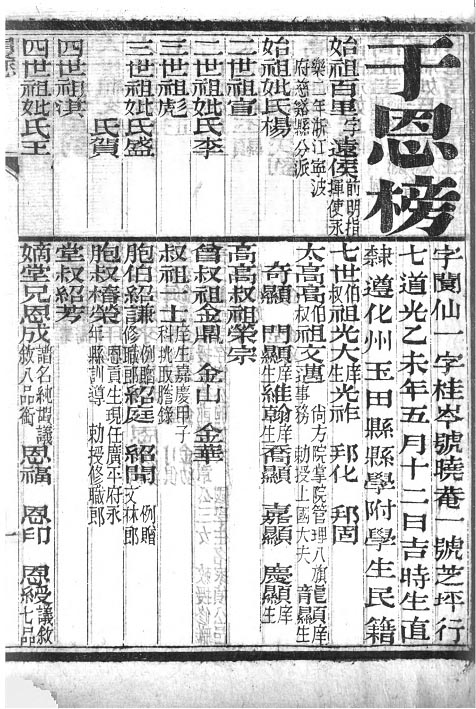 于恩榜
字閬仙一字桂岑號曉菴一號芝坪行
七道光乙未年五月十二日吉時生直
隸遵化州玉田縣縣學附學生民籍
始祖百里字遠侯前明指揮使永樂二年浙江寧波府慈谿縣分派
始祖妣氏楊
二世祖宣
二世祖妣氏李
三世祖彪
三世祖妣氏盛
氏賀
四世祖淇
四世祖妣氏王
七世伯叔祖光大庠生光祚 邦化 邦固
太高高伯叔祖文邁 尙方院掌院管理八旗事務勅授上國大夫 龍顯庠生
奇顯 門顯庠生維翰庠生喬顯 嘉顯 慶顯庠生
高高叔祖榮宗
曾叔祖金鼎 金山 金華
叔祖士 庠生嘉慶甲子科挑取謄錄
胞伯紹謙例贈修職郎紹庭 紹聞例贈文林郎
胞叔椿榮恩貢生現任廣平府永年縣訓導勅授修職郎
堂叔紹芳
嫡堂兄恩成譜名純嘏議敘八品銜 恩福 恩印 恩綬議敘七品